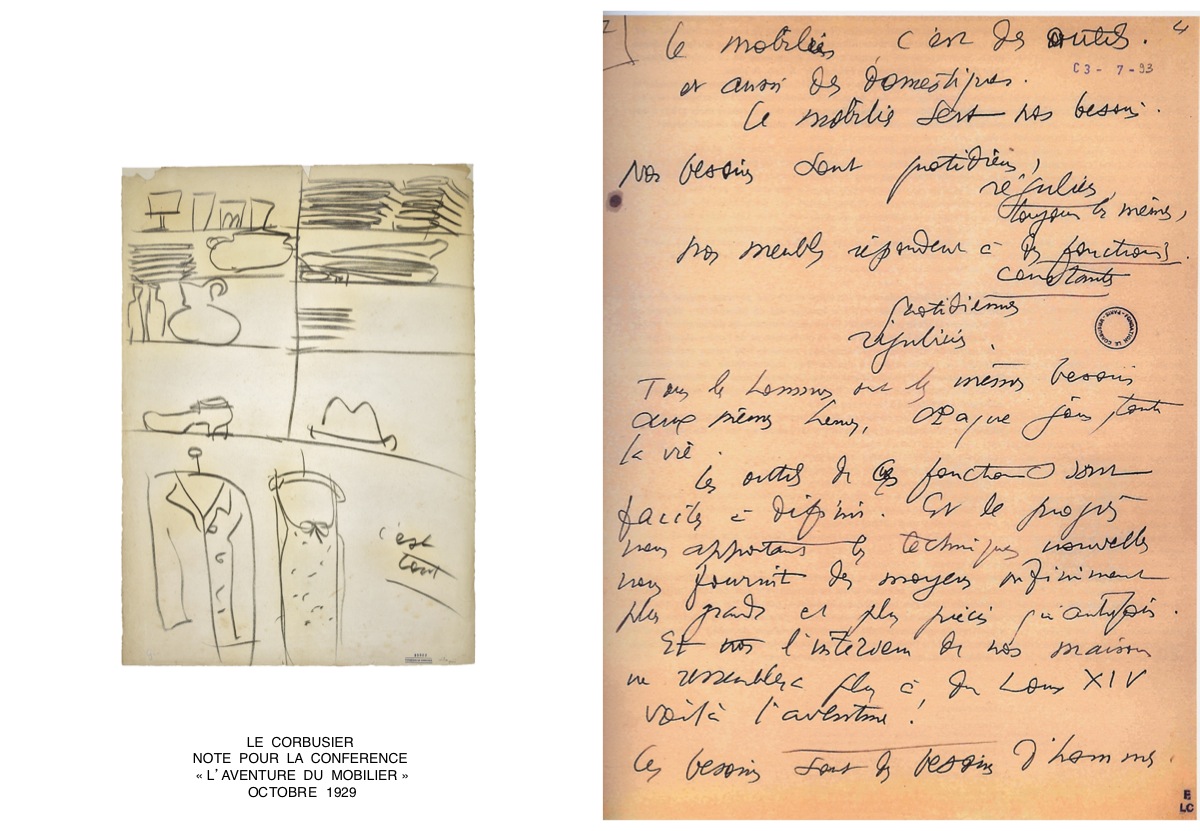 c'est
tout
LE CORBUSIER
NOTE POUR LA CONFERENCE
« L'AVENTURE DU MOBILIER »
OCTOBRE 1929
4
Le mobilier c'est des outils.
C3 - 7 - 93
et aussi des domestiques.
Le mobilier sert nos besoins.
Nos besoins sont quotidiens,
réguliers,
toujours les mêmes,
nos meubles répondent à des fonctions
constantes
quotidiennes
régulières.
Tous les hommes ont les mêmes besoins
aux mêmes heures, chaque jour, toute
la vie.
Les outils de ces fonctions sont
faciles à définir. Et le progrès
nous apportant les techniques nouvelles
nous fournit des moyens infiniment
plus grands et plus précis qu'autrefois.
Et l'intérieur de nos maisons
ne ressemblera plus à du Louis XIV
voilà l'aventure !
Ces besoins sont des besoins d'hommes.
FONDATION LE CORBUSIER - PARIS
LC